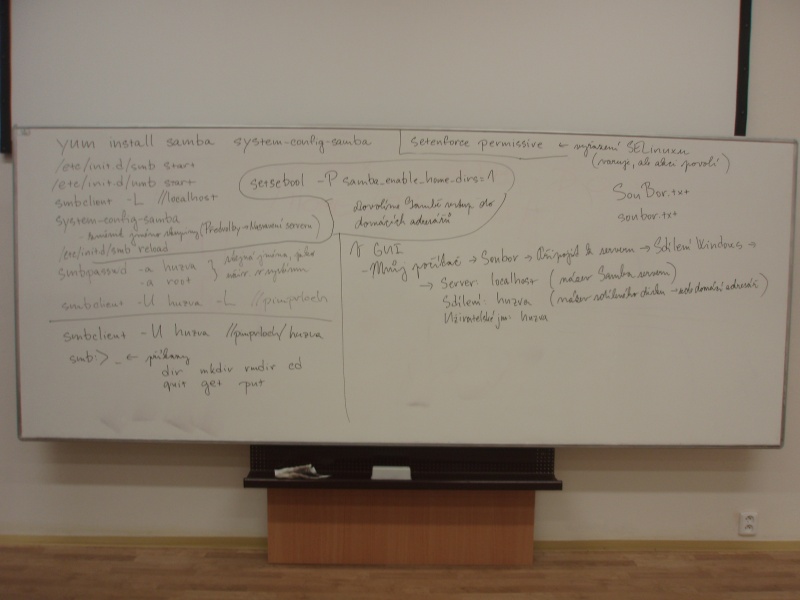 yum install samba system-config-samba
setenforce permissive ← vyřazení SELinuxu
(varuje, ale akci povolí)
/etc/init.d/smb start
/etc/init.d/nmb start
smbclient -L //localhost
system-config-samba
- jméno skupiny (Předvolby → Nastavení serveru)
/etc/init.d/smb reload
smbpasswd -a huzva
-a root
stejná jména, jako
v systému
smbclient -U huzva -L //pimprlech
smbclient -U huzva //pimprlech/huzva
smb:> _ ← příkazy
dir mkdir rmdir cd
quit get put
setsebool -P samba_enable_home_dirs=1
Dovolíme Sambě vstup do
domácích adresářů
SouBor.txt
soubor.txt
V GUI
- Můj počítač → Soubor → Připojit k serveru → Sdílení Windows →
→ Server: localhost (název Samba serveru)
Sdílení: huzva (název sdíleného disku → domácí adresář)
Uživatelské jm. huzva